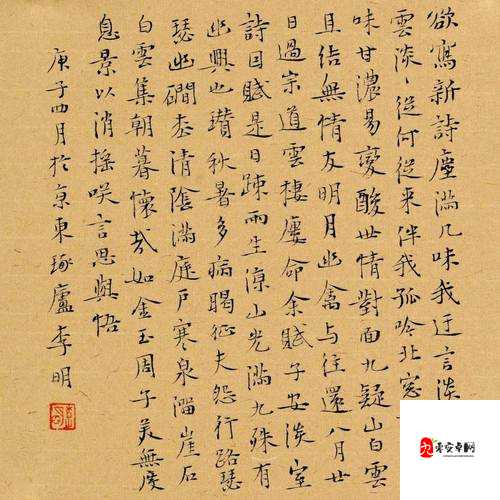 欲寫新詩塵滿几味我迂言淡
雲淡〻從何從来伴我孤吟北窓
味甘濃易變酸世情對面九疑山白雲
且结無情友明月幽禽与往還八月廿
日過宗道雲棲屢命余賦子安淡室
詩因賦是日踈雨生涼山光滿九殊有
幽興也瓚秋暑多病暍征夫怨行路瑟
瑟幽磵松清陰滿庭戶寒泉溜崖石
白雲集朝暮懷哉如金玉周子美無度
息景以消摇咲言思與悟
庚子四月於京東琢廬李明
零安卓网